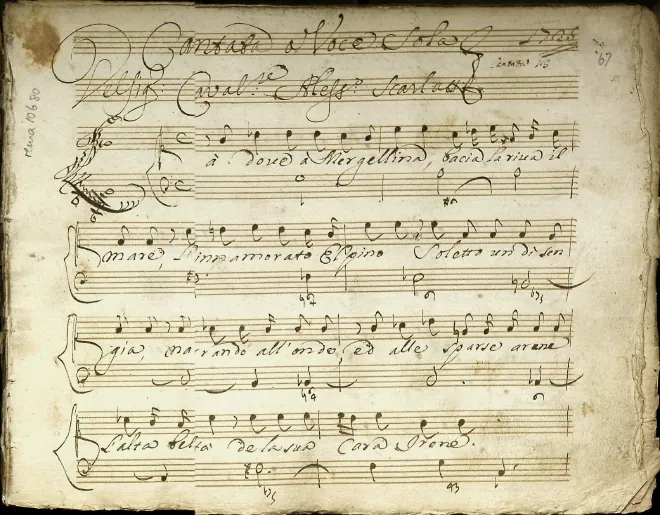 Cantata a Voce Sola
Del Sig.r Caval.re Aless.o Scarlatti
67
là dove a Mergellina, bacia la riva il
mare, L'innamorato Elpino Soletto un di sen
gia, narrando all'onde, ed alle sparse arene
L'alta beltà de la sua Cara Irene.